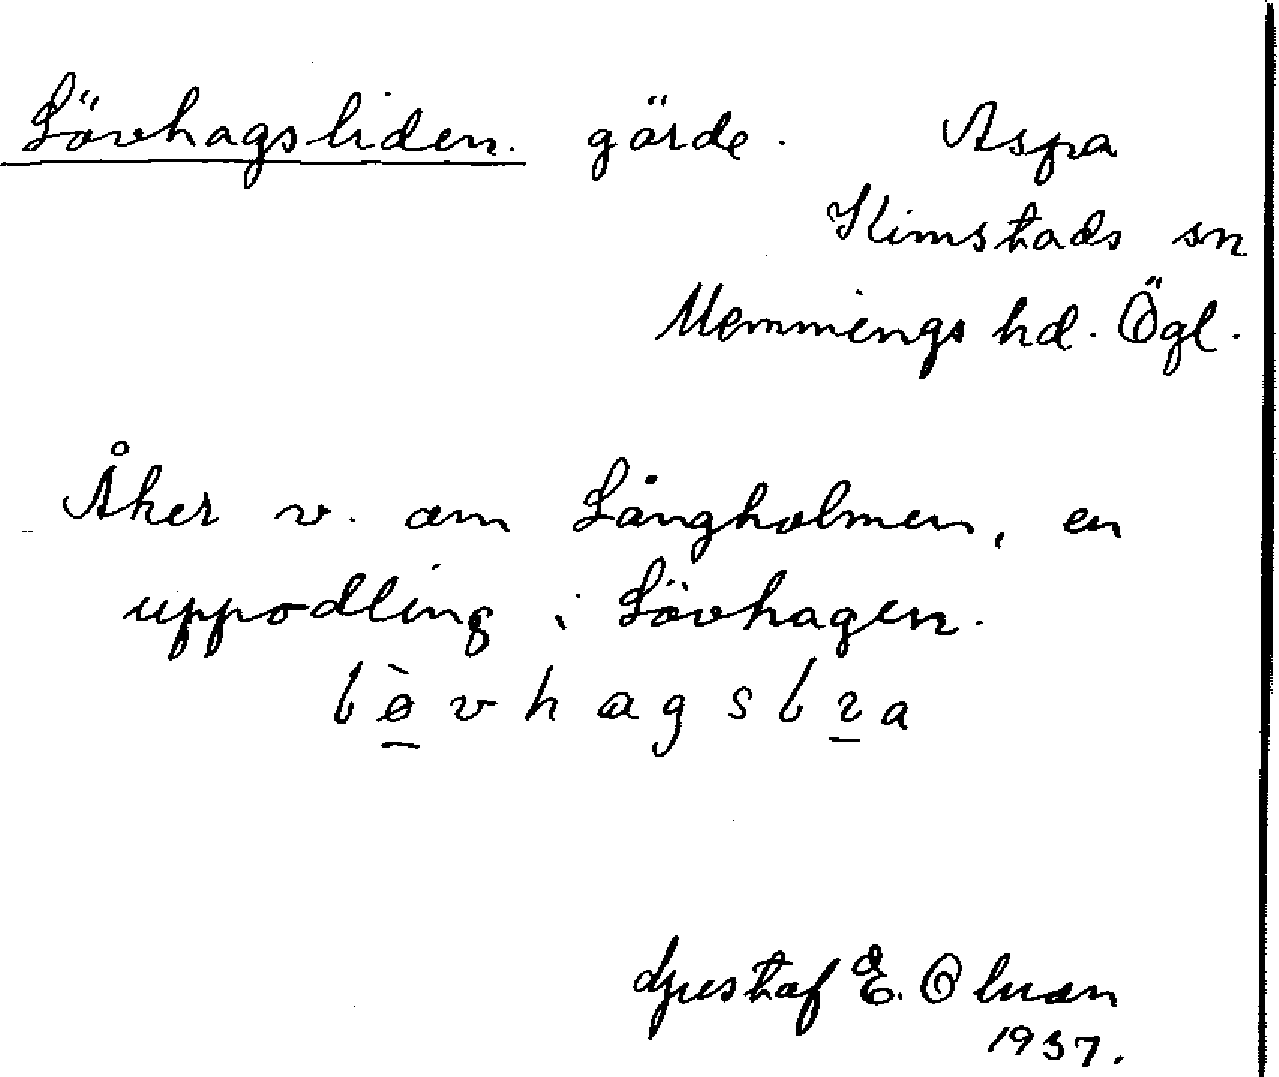 Lövhagsliden. gärde. Aspa
Kimstads sn
Memmings hd. Ögl.
Åker v. om Långholmen, en
uppodling i Lövhagen.
Gustaf E. Olson
1937.